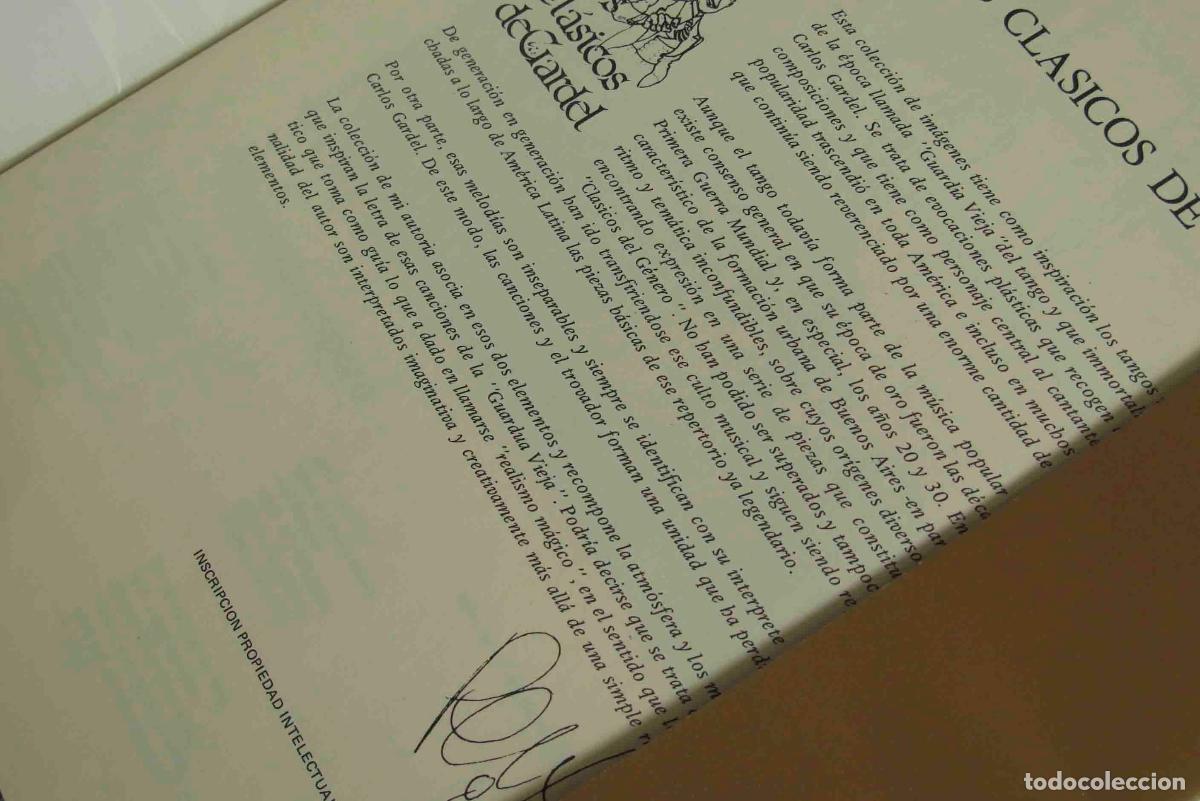 CLASICOS DE
clásicos
de Gardel
Esta colección de imágenes tiene como inspiración los tangos
de la época llamada "Guardia Vieja" del tango y que inmortali
Carlos Gardel. Se trata de evocaciones plásticas que recogen
composiciones y que tiene como personaje central al cantante
popularidad trascendió en toda América e incluso en muchos
que continúa siendo reverenciado por una enorme cantidad de
Aunque el tango todavía forma parte de la música popular
existe consenso general en que su época de oro fueron las déca
Primera Guerra Mundial y, en especial, los años 20 y 30. En
característico de la formación urbana de Buenos Aires -en par
ritmo y temática inconfundibles, sobre cuyos orígenes diverso
encontrando expresión en una serie de piezas que constitu
"Clasicos del Género". No han podido ser superados y tampoc
De generación en generación han ido transfiriéndose ese culto musical y siguen siendo re
chadas a lo largo de América Latina las piezas básicas de ese repertorio ya legendario.
Por otra parte, esas melodías son inseparables y siempre se identifican con su interprete
Carlos Gardel. De este modo, las canciones y el trovador forman una unidad que ha perd
La colección de mi autoria asocia en esos dos elementos y recompone la atmósfera y los m
que inspiran la letra de esas canciones de la "Guardua Vieja". Podría decirse que se trata
tico que toma como guía lo que a dado en llamarse "realismo mágico", en el sentido que l
nalidad del autor son interpretados imaginativa y creativamente más allá de una simple r
elementos.
INSCRIPCION PROPIEDAD INTELECTUA
todocoleccion